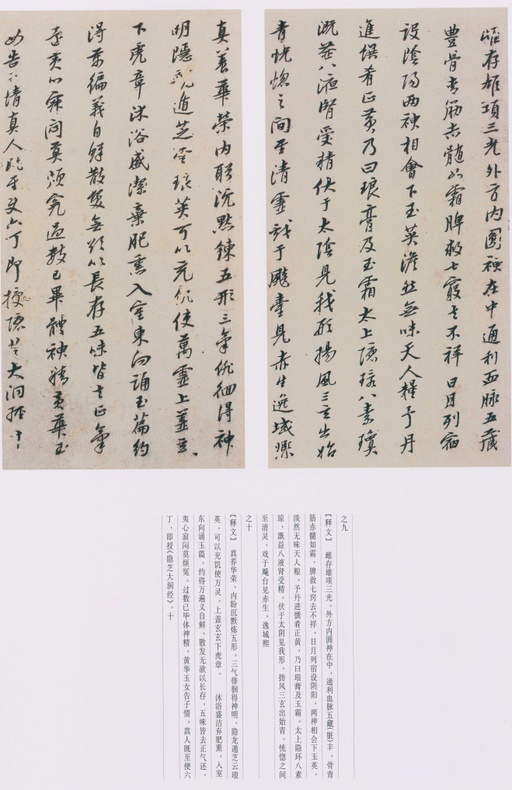 雌存雄項三光外方內圓神在中通利血脉五藏
豐骨青筋赤髓如霜脾救七竅去不祥日月列宿
設陰陽兩神相會下玉英澹然無味天人糧子丹
進饌肴正黃乃曰琅膏及玉霜太上隱環八素瓊
溉益八液腎受精伏于太陰見我形揚風三玄出始
青恍惚之間至清靈戲于飈臺見赤生逸域熙
真養華榮內盼沉默鍊五形三氣徘徊得神
明隱龍遁芝雲琅英可以充飢使萬靈上蓋玄玄
下虎章沐浴盛潔棄肥薰入室東向誦玉篇約
得萬編義自鮮散髮無欲以長存五味皆去正氣
還夷心寂悶莫煩冤過數已畢體神精黃華玉
女告子情真人既至使六丁即授隱芝大洞經十
之九
【释文】 雌存雄项三光，外方内圆神在中，通利血脉五藏（脏）丰，骨青
筋赤髓如霜，脾救七窍去不祥。日月列宿设阴阳，两神相会下玉英，
淡然无味天人粮。子丹进馔肴正黄，乃曰琅膏及玉霜，太上隐环八素
琼，溉益八液肾受精。伏于太阴见我形，扬风三玄出始青，恍惚之间
至清灵，戏于飚台见赤生，逸域熙
之十
【释文】 真养华荣，内盼沉默炼五形，三气徘徊得神明，隐龙遁芝云琅
英，可以充饥使万灵，上盖玄玄下虎章。 沐浴盛洁弃肥薰，入室
东向诵玉篇，约得万遍义自鲜，散发无欲以长存，五味皆去正气还，
夷心寂闷莫烦冤，过数已毕体神精，黄华玉女告子情，真人既至使六
丁，即授《隐芝大洞经》，十